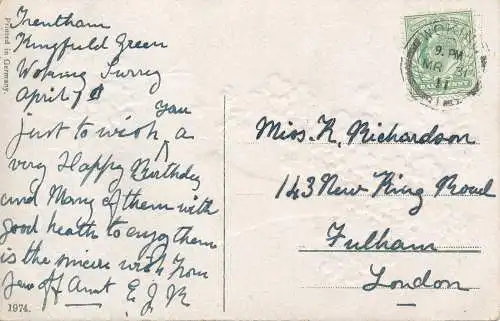 Printed in Germany.
Trentham
Kingfield Green
Woking Surrey
April 7
Just to wish you a
very Happy Birthday
and Many of them with
good heath to enjoy them
is the sincere wish from
Aunt E J R
1974.
WOKING
9. PM
MR 31
11
Miss. K. Richardson
143 New King Road
Fulham
London